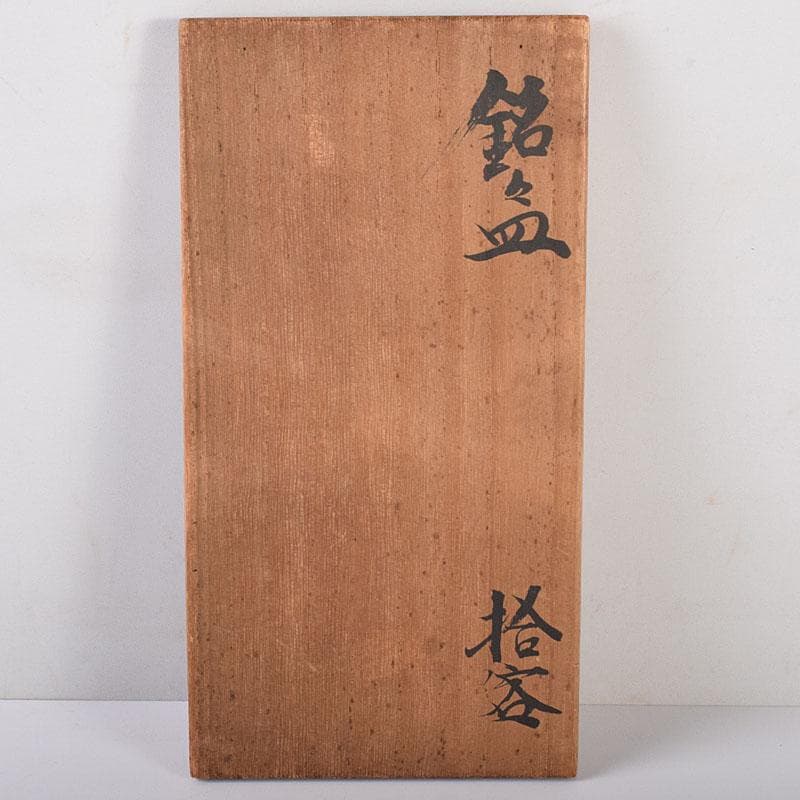 銘々皿
拾客